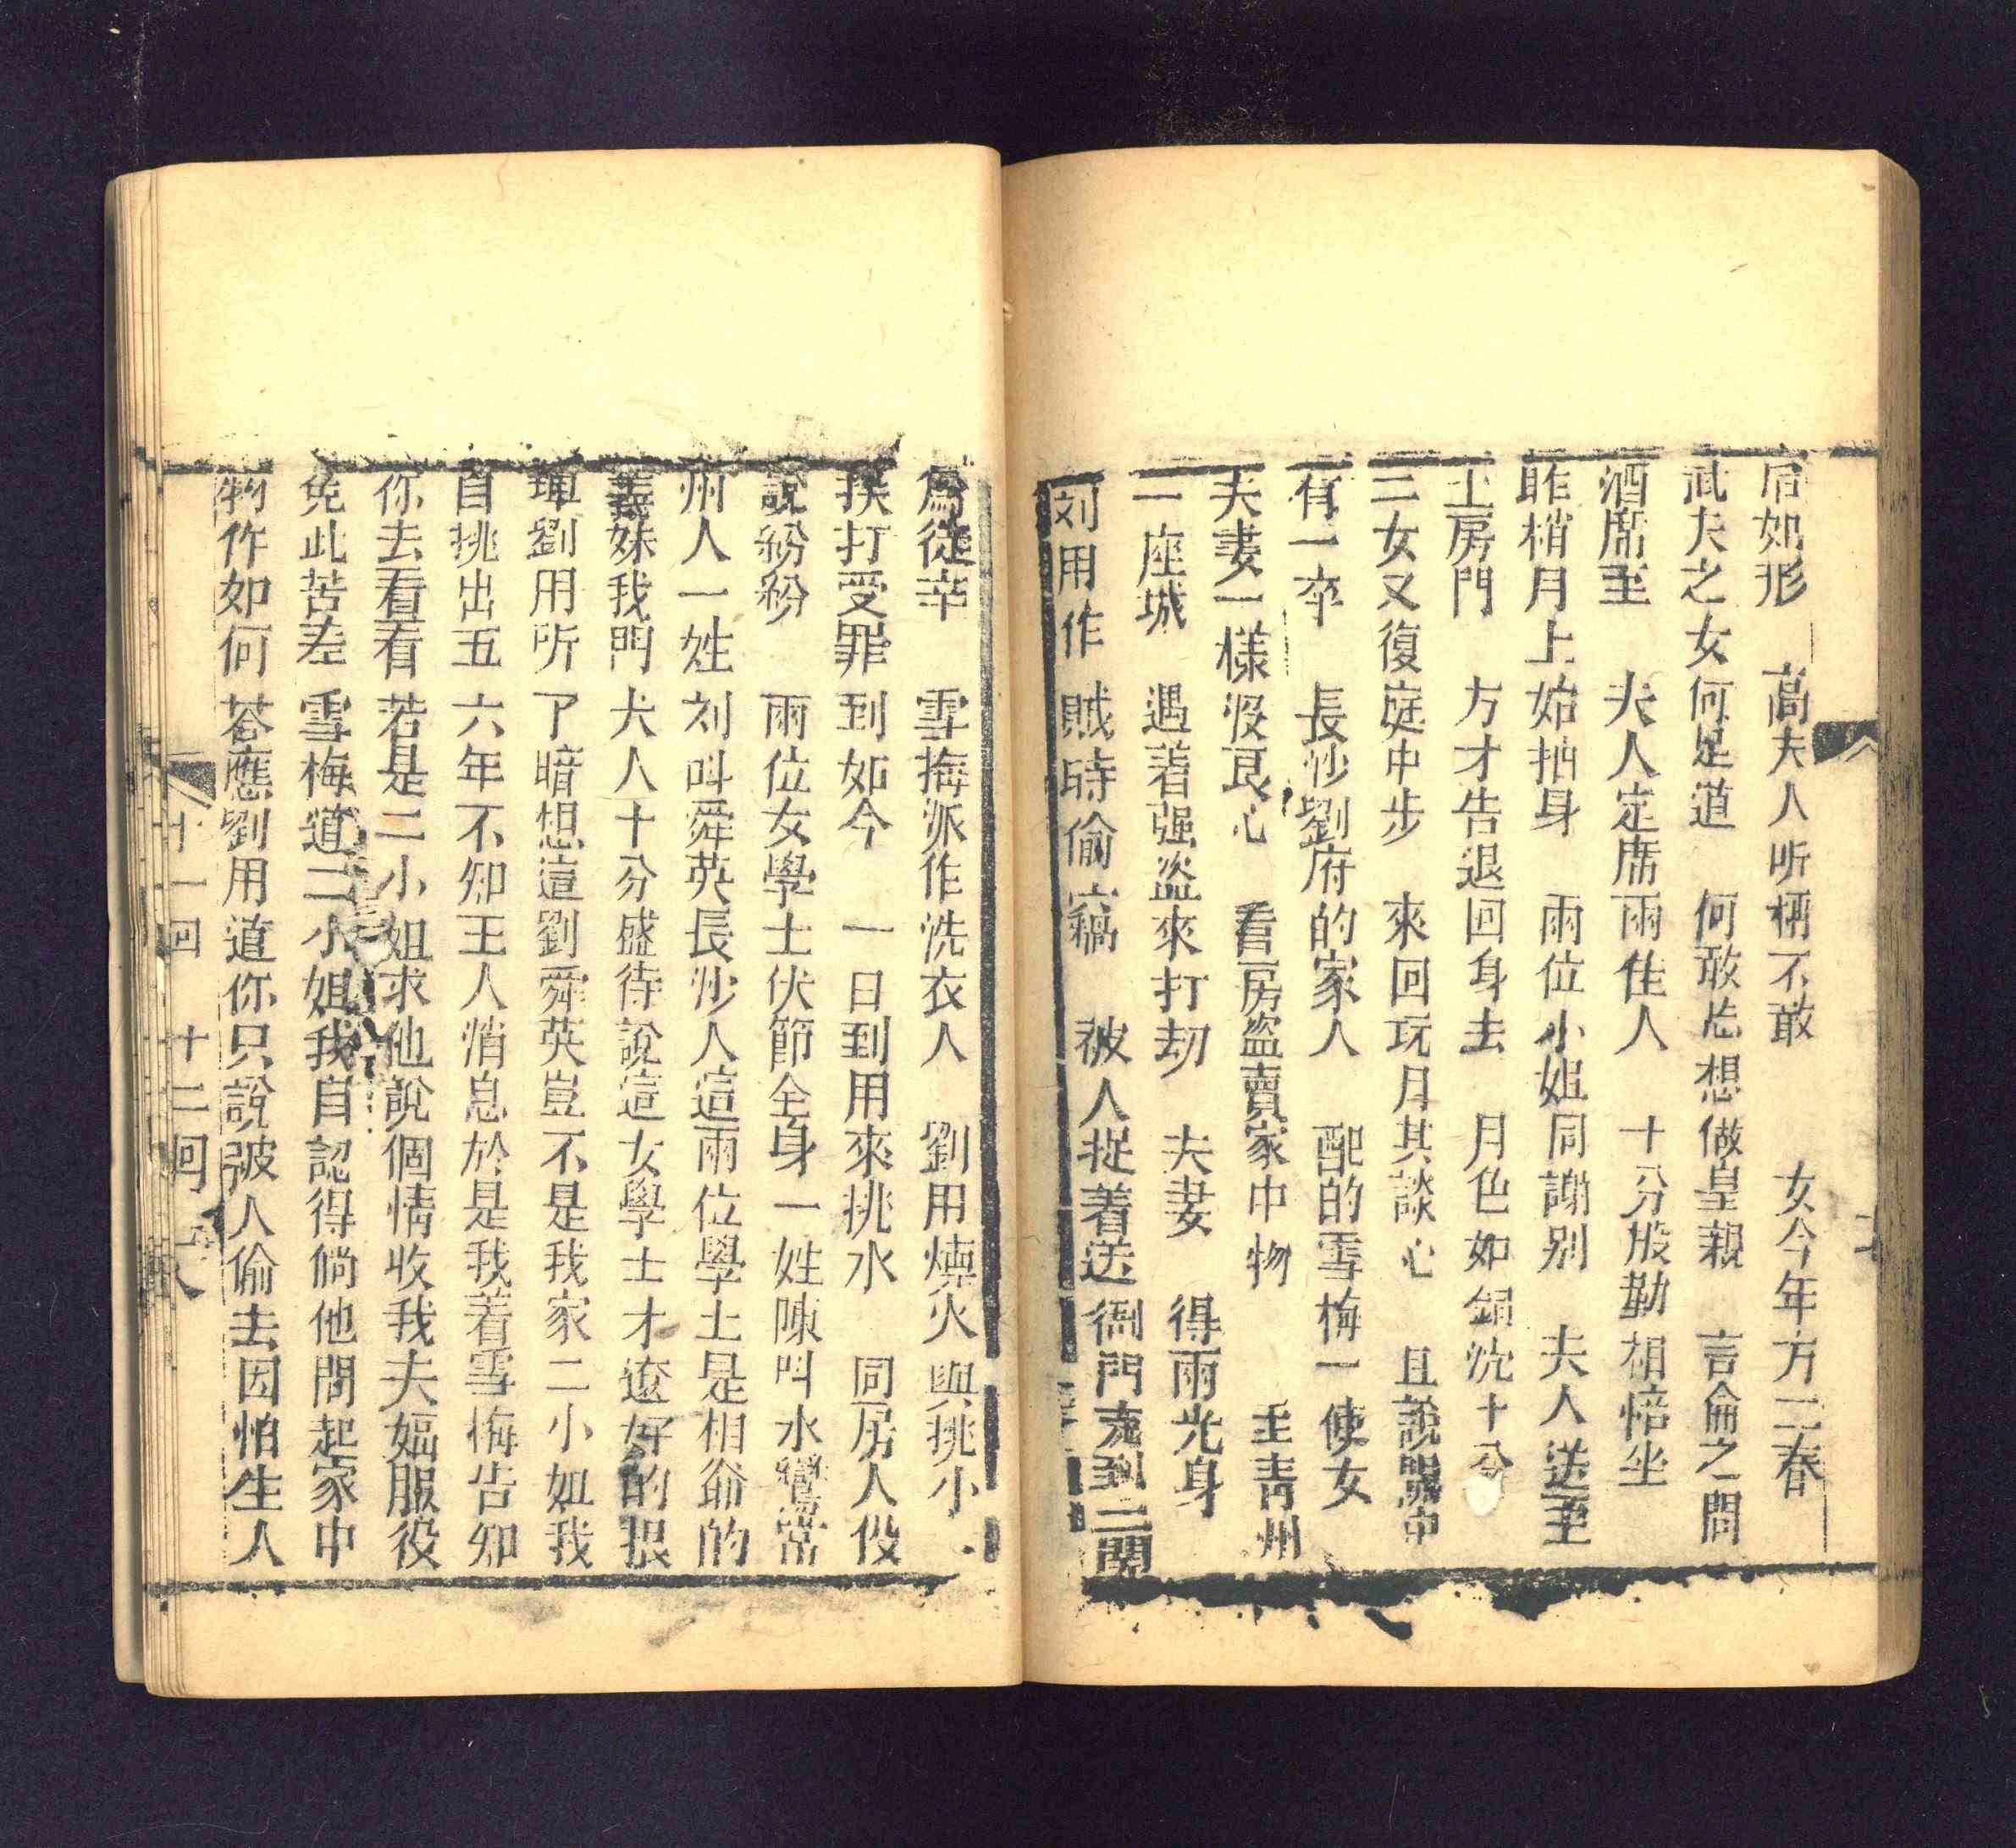 后如形　高夫人听柄不敢　女今年方二春
武夫之女何足道　何敢忘想做皇親　言倫之間
酒席至　夫人定席兩佳人　十分殷勤相偣坐
昨梢月上始抽身　兩位小姐同謝别　夫人送至
上房門　方才告退回身去　月色如銀沈十分
二女又復庭中步　來回玩月其談心　且說中
有一卒　長沙劉府的家人　配的雪梅一使女
夫妻一樣沒良心　看房盜賣家中物　主青州
一座城　遇着强盜來打刼　夫妻得兩光身
刘用作賊時偷竊　被人捉着送衙門克到二関
為徒辛　雪梅派作洗衣人　劉用燒火與挑小
挨打受罪到如今　一日到用來挑水　同房人役
說紛紛　兩位女學士伏節全身一姓陳叫水鸞常
州人一姓刘叫舜英長沙人這兩位學士是相爺的
義妹我門大人十分盛待說這女學士才遼好的狠
劉用所了暗想這劉舜英豈不是我家二小姐我
自挑出五六年不知王人消息於是我着雪梅告知
你去看看若是二小姐求他說個情收我夫婦服役
免此苦差雪梅道二小姐我自認得倘他問起家中
物作如何荅應劉用道你只說被人偷去因怕生人
十一回　十二回　十八